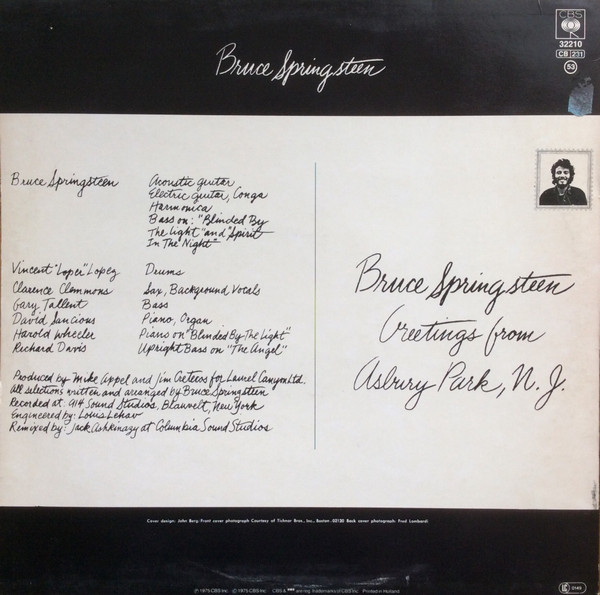 CBS
32210
CB 231
53
Bruce Springsteen
Bruce Springsteen
Acoustic guitar
Electric guitar, Conga
Harmonica
Bass on: "Blinded By
The Light" and "Spirit
In The Night"
Vincent "Loper" Lopez Drums
Clarence Clemmons Sax, Background Vocals
Gary Tallent Bass
David Sancious Piano, Organ
Harold Wheeler Piano on "Blinded By The Light"
Richard Davis Upright Bass on "The Angel"
Produced by Mike Appel and Jim Cretecos for Laurel Canyon Ltd.
All selections written and arranged by Bruce Springsteen
Recorded at: 914 Sound Studios, Blauvelt, New York
Engineered by: Louis Lahav
Remixed by: Jack Ashkinazy at Columbia Sound Studios
Bruce Springsteen
Greetings from
Asbury Park, N. J.
Cover design: John Berg/Front cover photograph Courtesy of Tichnor Bros., Inc., Boston .02130 Back cover photograph: Fred Lombardi.
℗ 1975 CBS Inc. © 1975 CBS Inc. CBS & are reg. trademarks of CBS Inc. Printed in Holland
LC 0149